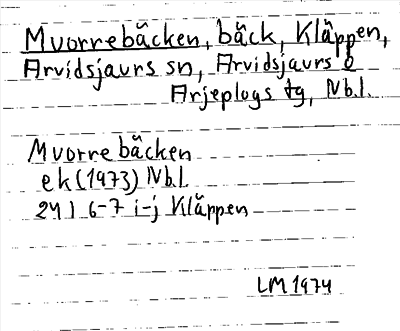 Muorrebäcken, bäck, Kläppen,
Arvidsjaurs sn, Arvidsjaurs o
Arjeplogs tg, Nbl.
Muorrebäcken
ek (1973) Nbl.
24 J 6-7 i-j Kläppen
LM 1974